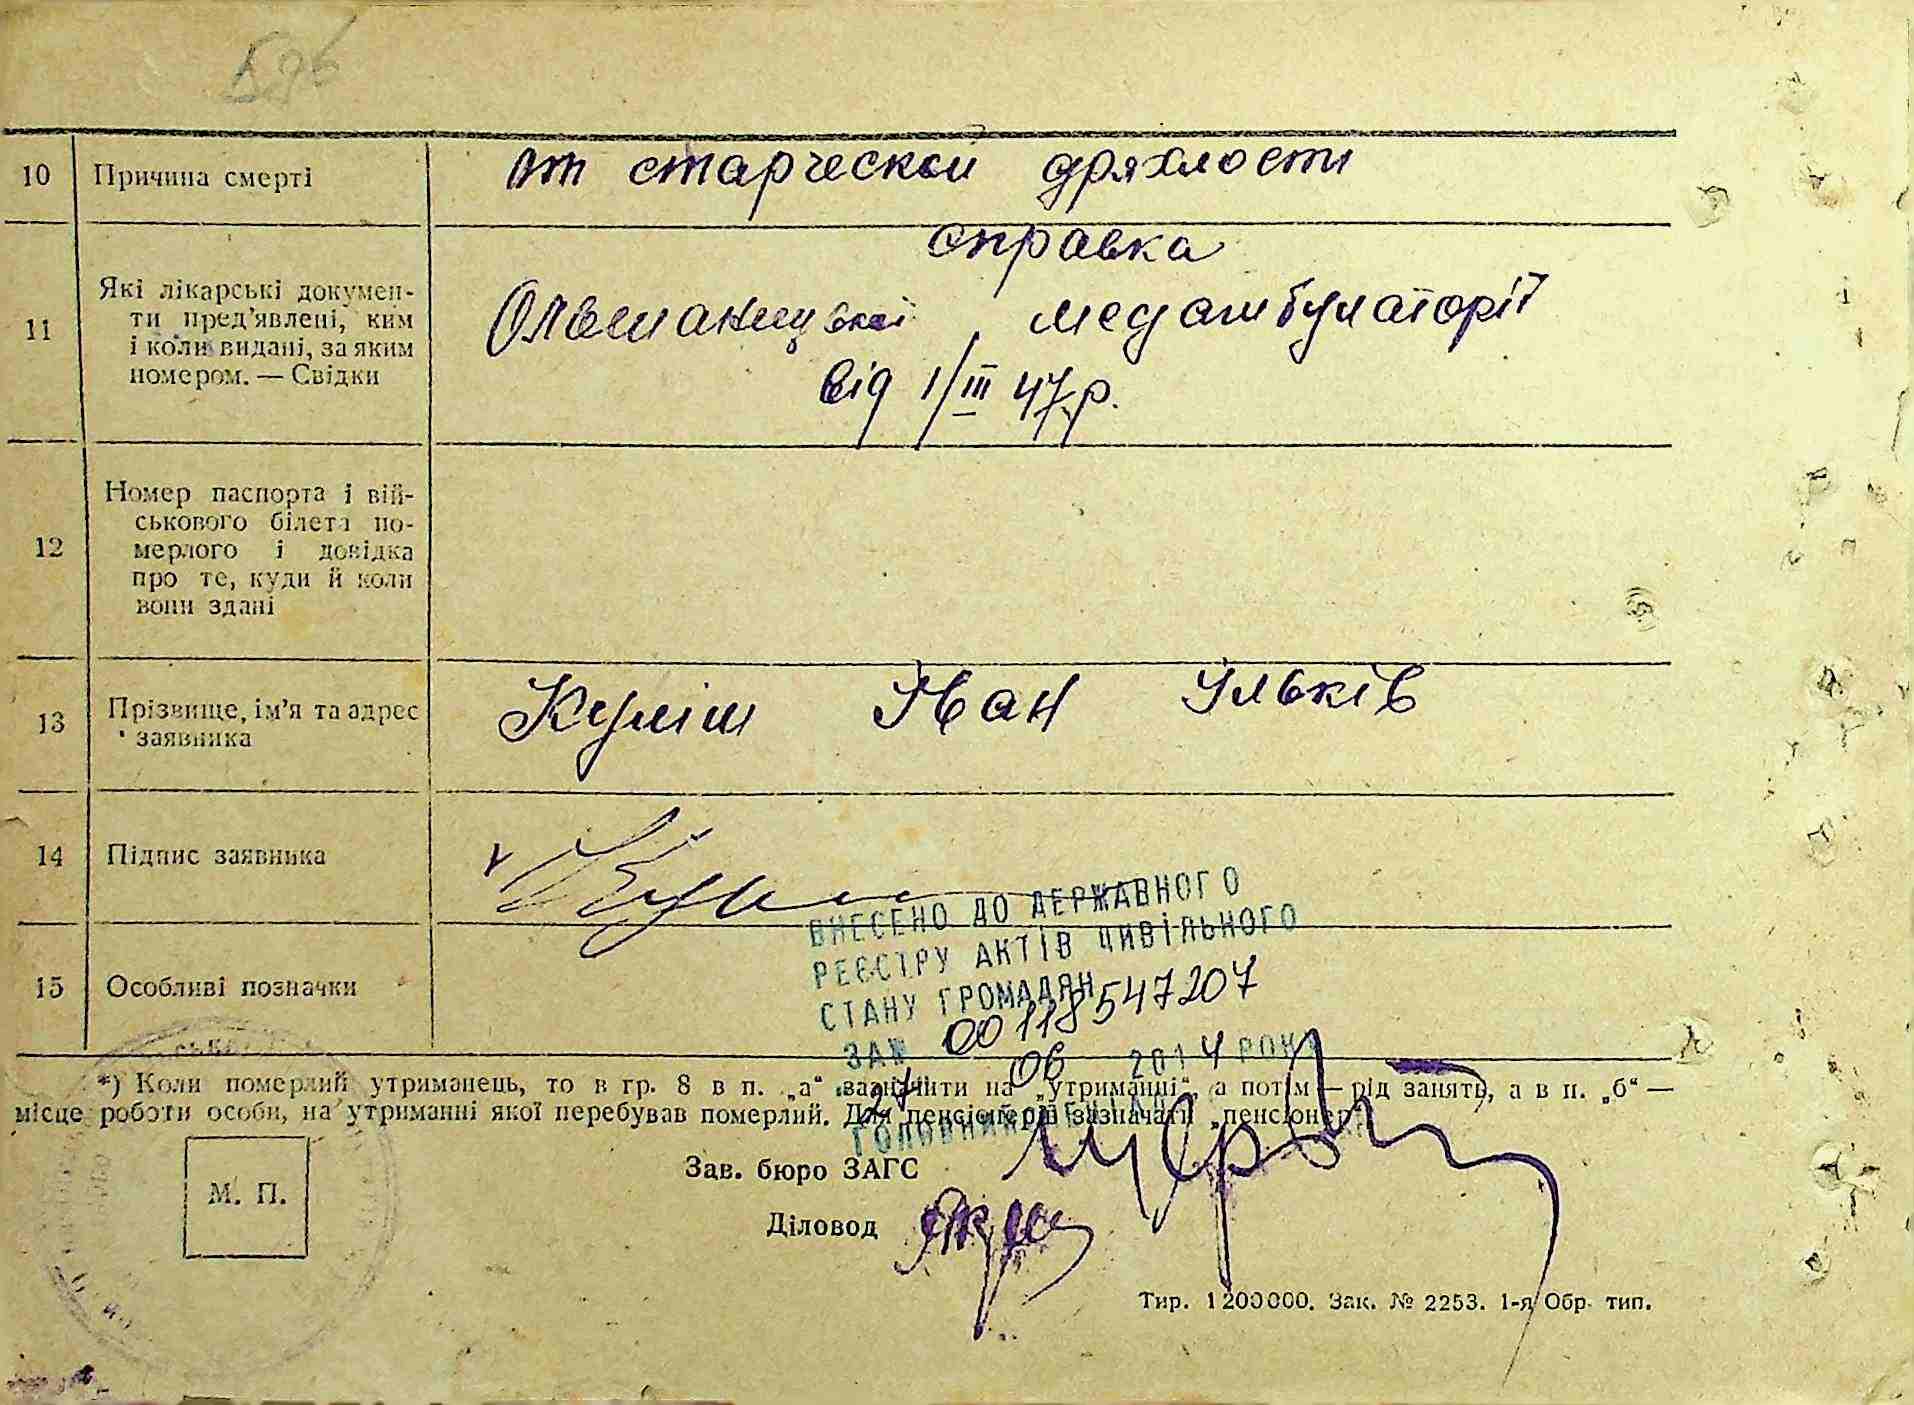 596
10 Причина смерті от старческой дряхлости
справка
11 Які лікарські докумен-
ти пред'явлені, ким
і коли видані, за яким
номером. — Свідки
Ольшаницької медамбулаторії
від 1/III 47 р.
12 Номер паспорта і вій-
ськового білета по-
мерлого і довідка
про те, куди й коли
вони здані
13 Прізвище, ім'я та адрес
заявника
Куліш Іван Ільків
14 Підпис заявника
15 Особливі позначки
ВНЕСЕНО ДО ДЕРЖАВНОГО
РЕЄСТРУ АКТІВ ЦИВІЛЬНОГО
СТАНУ ГРОМАДЯН
ЗА № 00118547207
06 2014 РОКУ
*) Коли померлий утриманець, то в гр. 8 в п. „а“ зазначити на „утриманні“, а потім — рід занять, а в п. „б“ —
місце роботи особи, на утриманні якої перебував померлий. Для пенсіонерів зазначати „пенсіонер“
М. П.
Зав. бюро ЗАГС
Діловод
Тир. 1200000. Зак. № 2253. 1-я Обр. тип.